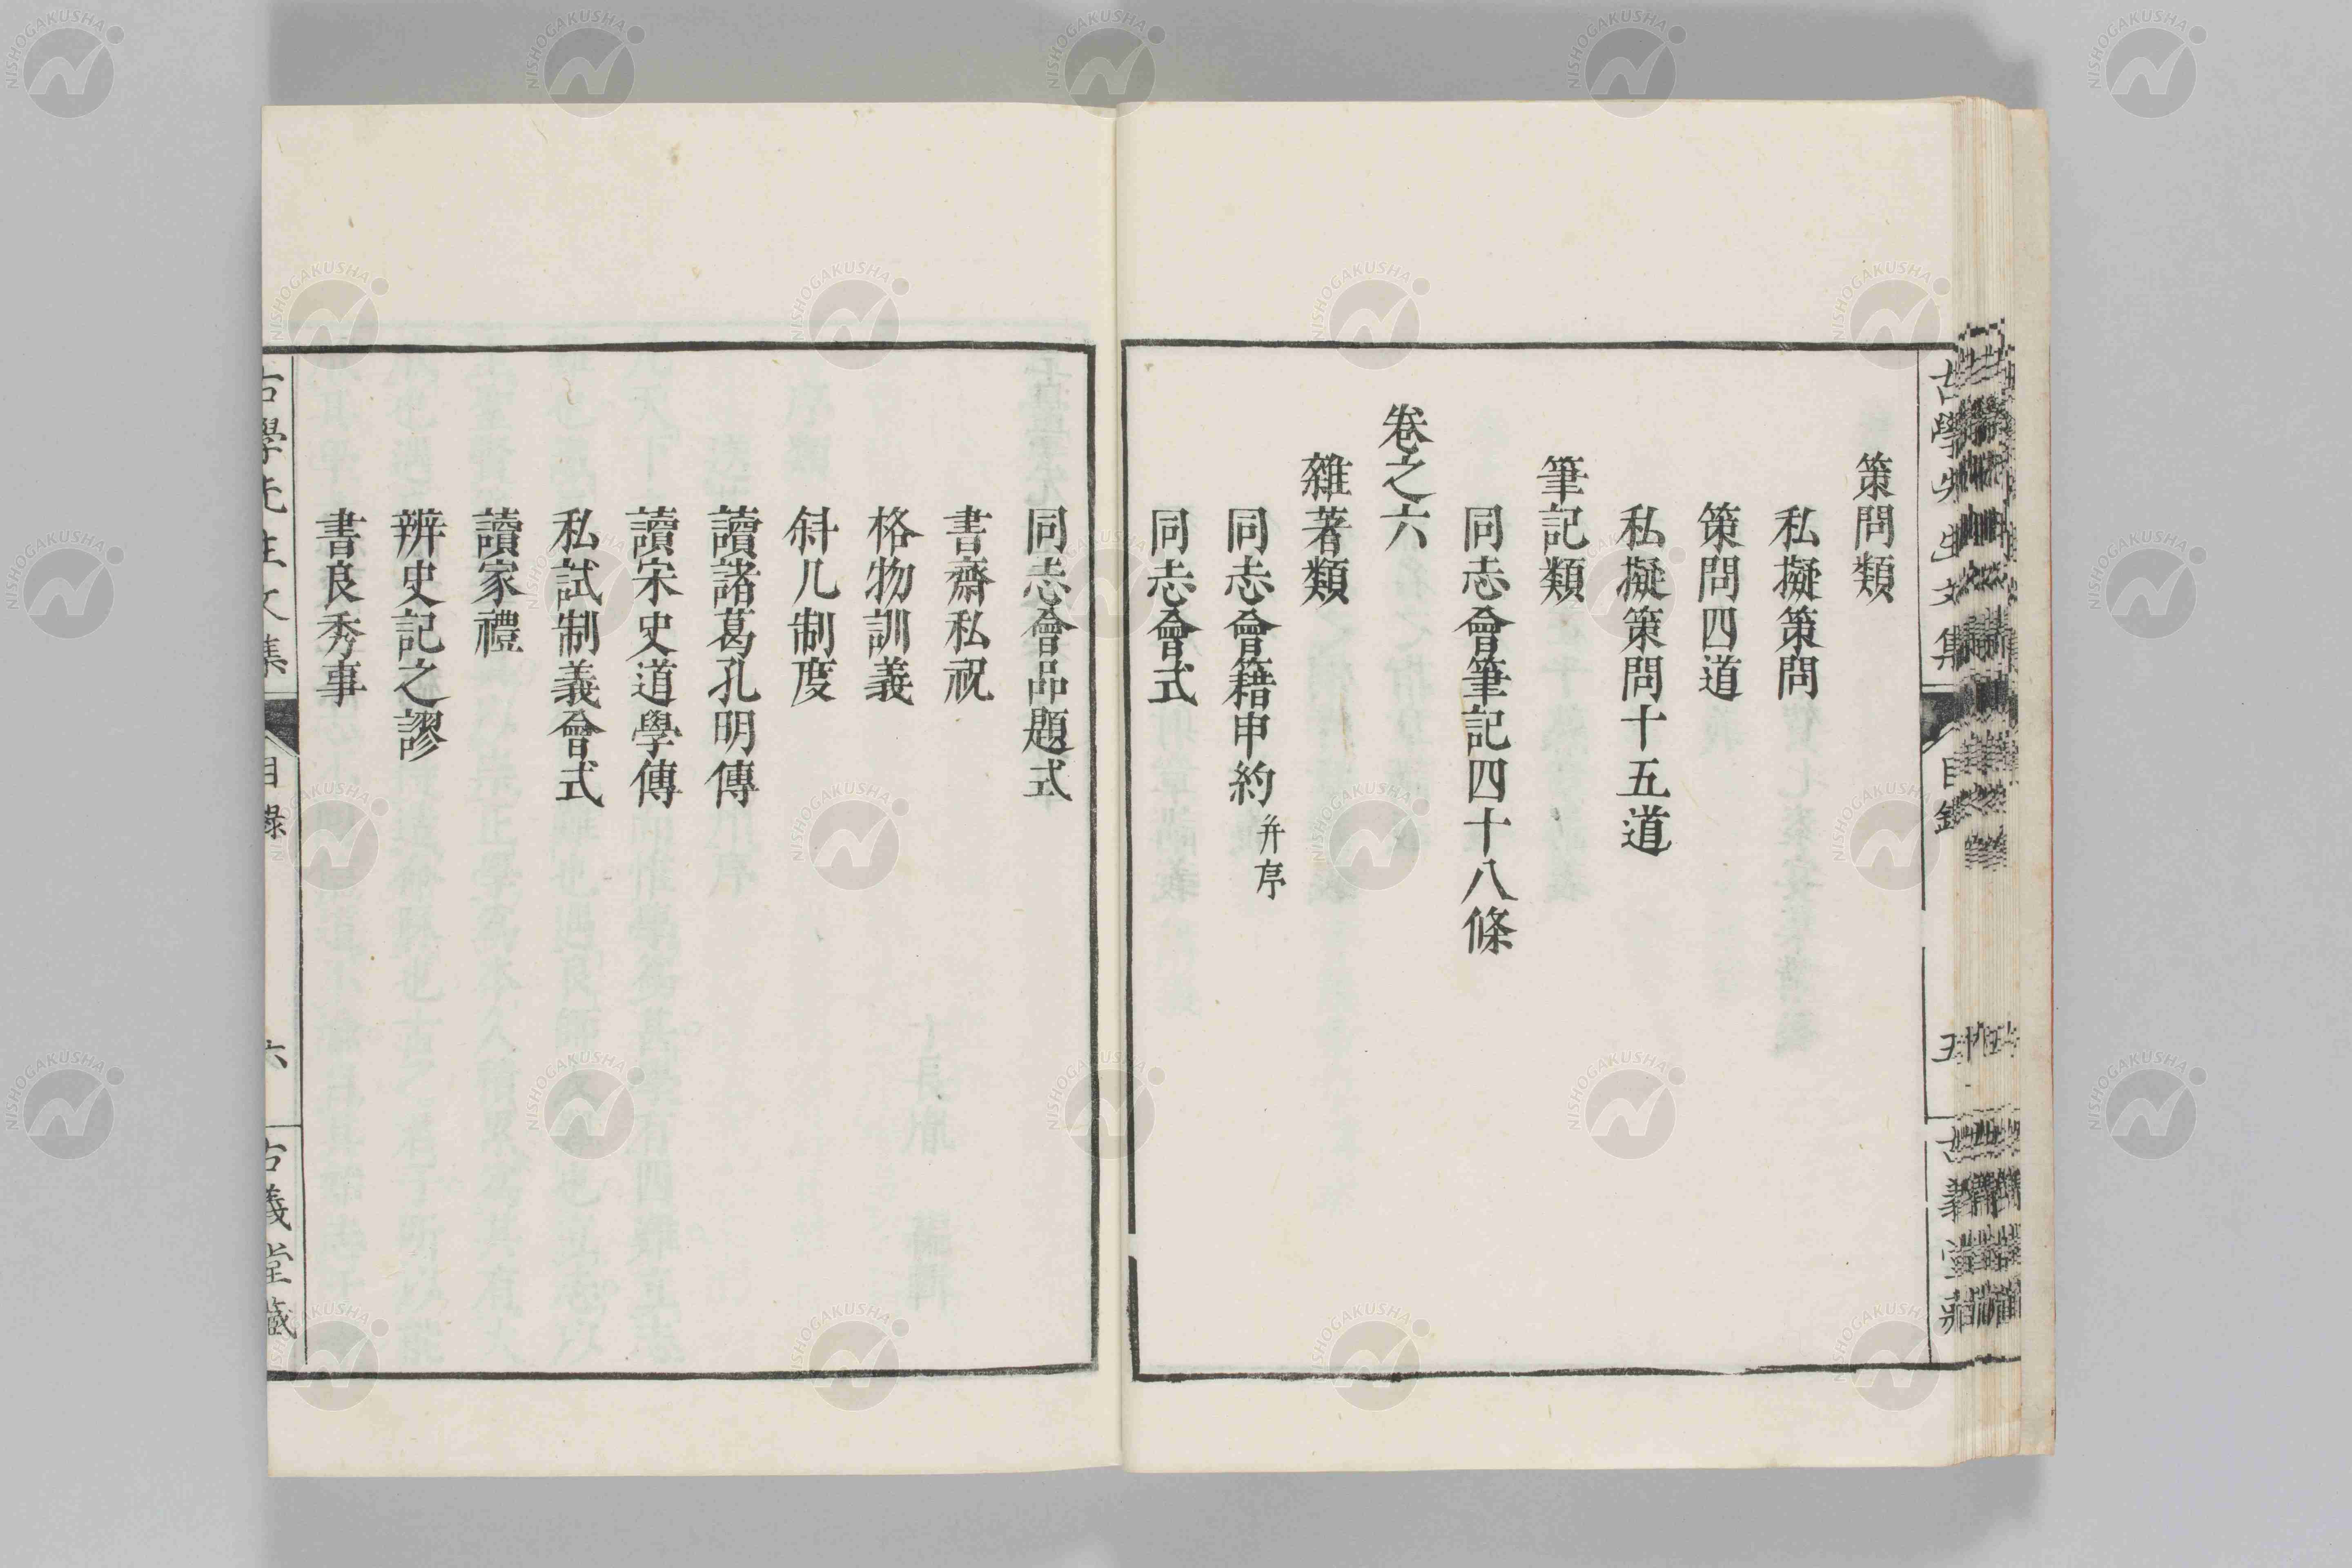 古學先生文集 目錄 五 古義堂藏
策問類
私擬策問
策問四道
私擬策問十五道
筆記類
同志會筆記四十八條
卷之六
雜著類
同志會籍申約 并序
同志會式
同志會品題式
書齋私祝
格物訓義
斜几制度
讀諸葛孔明傳
讀宋史道學傳
私試制義會式
讀家禮
辨史記之謬
書良秀事
古學先生文集 目錄 六 古義堂藏
NISHOGAKUSHA